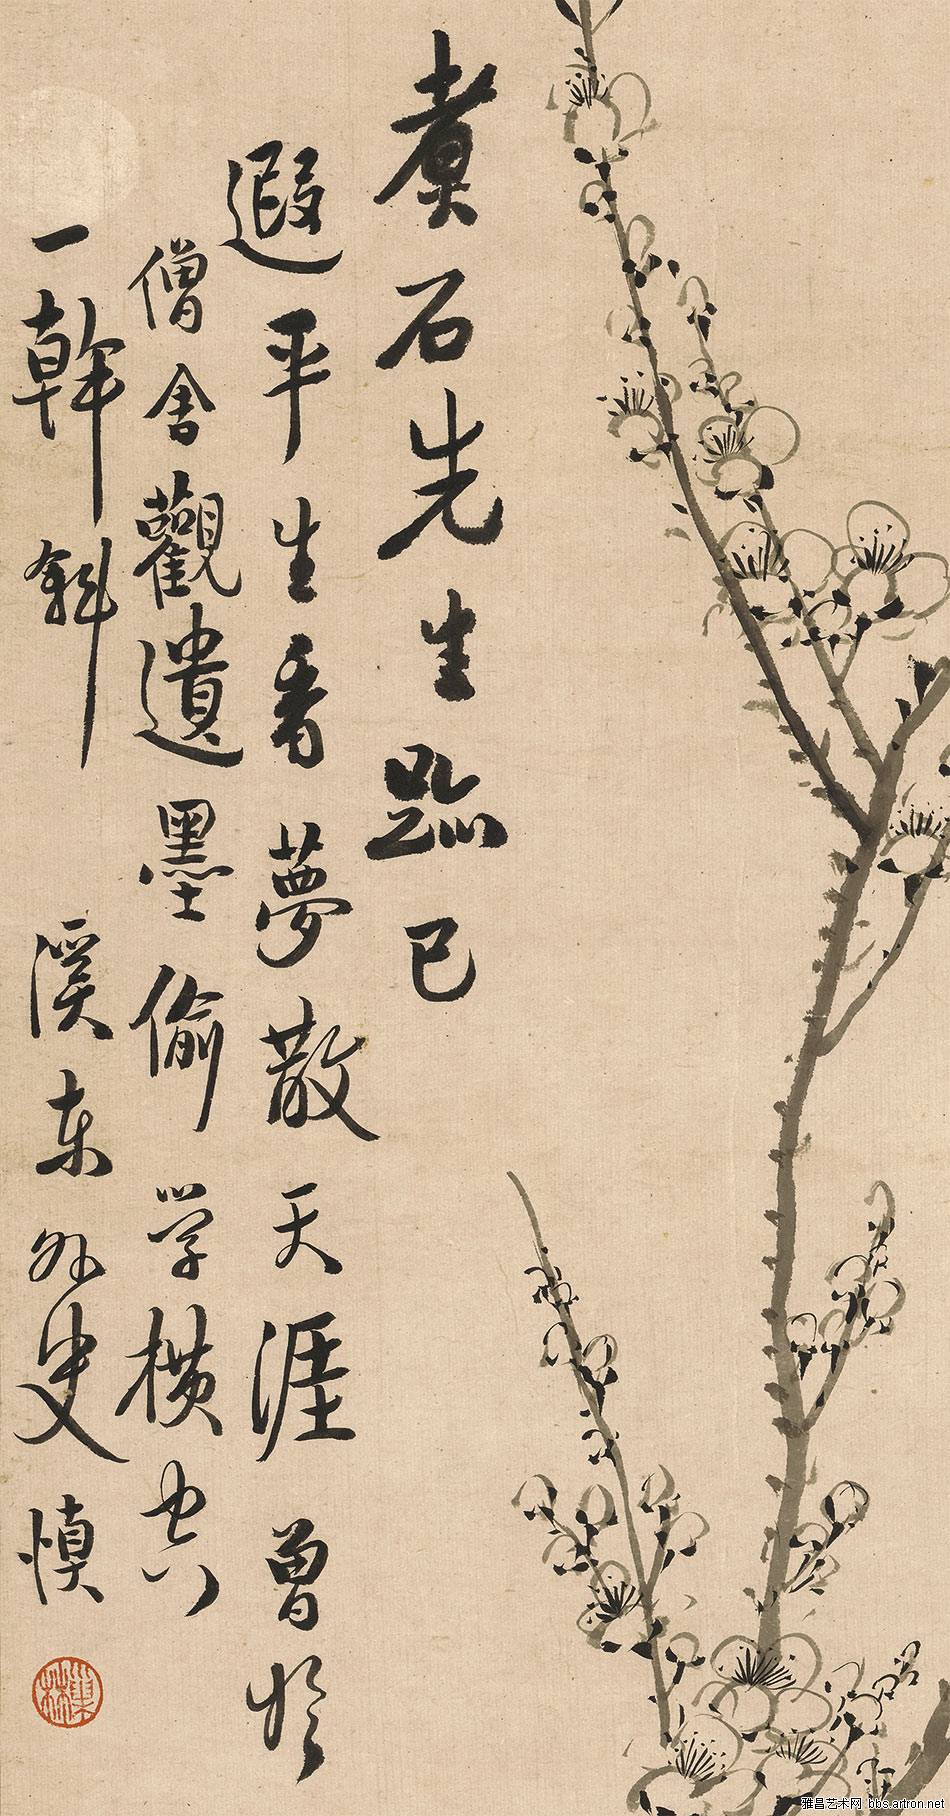 煮石先生蹤已
遐平生香夢散天涯曽於
僧舍觀遺墨偷学橫窓
一幹斜
溪東外史慎
集林
雅昌艺术网 bbs.artron.net